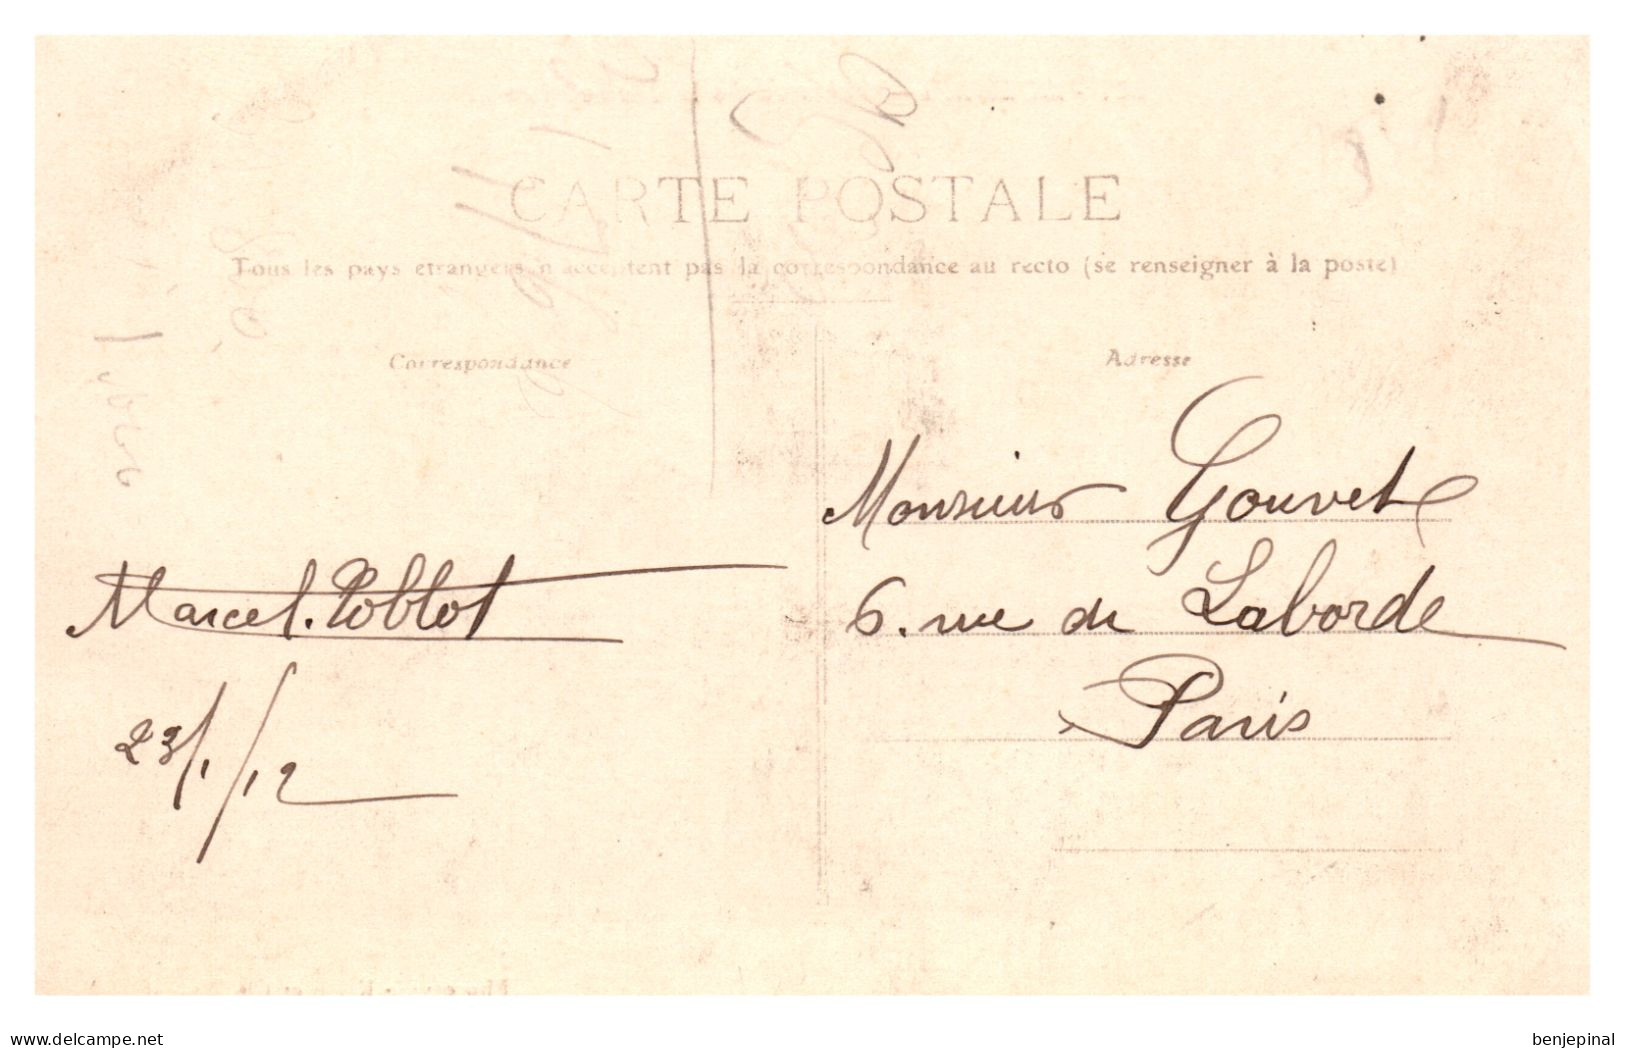 CARTE POSTALE
Tous les pays étrangers n'acceptent pas la correspondance au recto (se renseigner à la poste)
Correspondance
Adresse
Monsieur Gouvet
6. rue de Laborde
Paris
Marcel. Poblot
23/1/12
www.delcampe.net
benjepinal